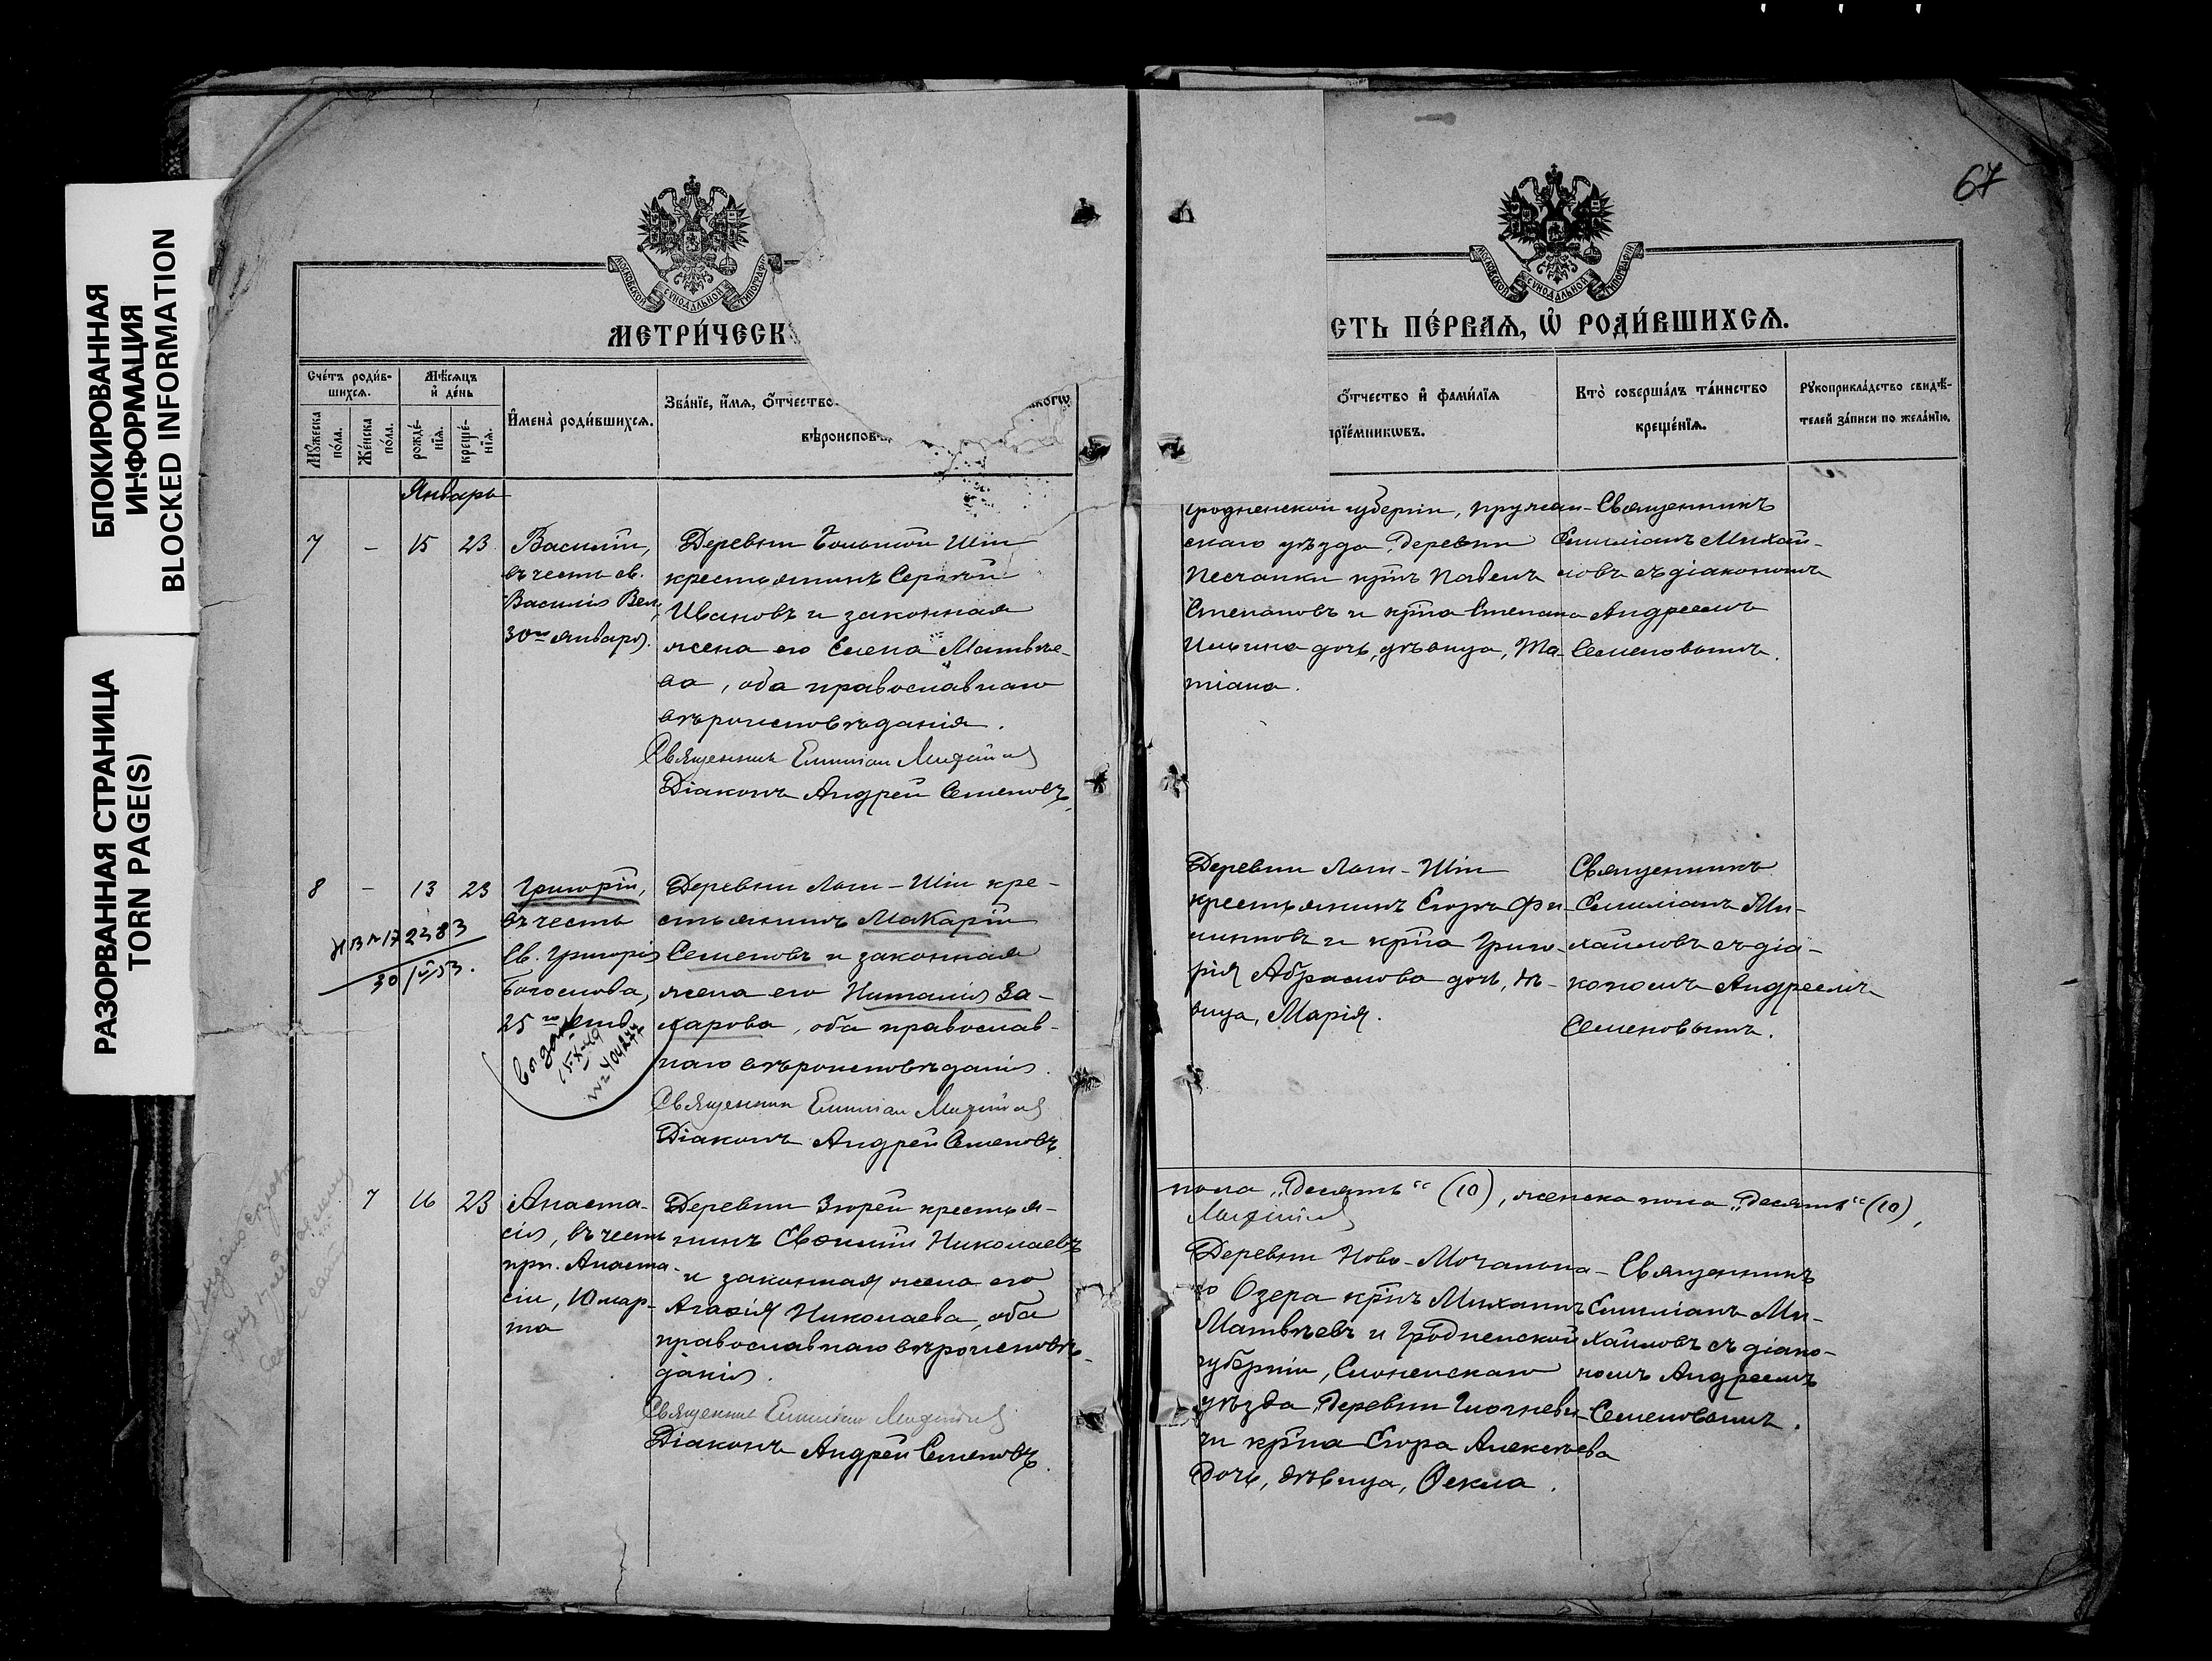 БЛОКИРОВАННАЯ
ИНФОРМАЦИЯ
BLOCKED INFORMATION
РАЗОРВАННАЯ СТРАНИЦА
TORN PAGE(S)
МОСКОВСКОЙ СѴНОДАЛЬНОЙ ТИПОГРАФІИ
МЕТРИ́ЧЕСК
Сче́тъ роди́в-
шихсѧ.
Мѣ́сѧцъ
и҆ де́нь
Мꙋ́жеска
по́ла.
Же́нска
по́ла.
рожде́-
нїѧ.
креще́-
нїѧ.
И҆мена̀ роди́вшихсѧ.
Зва́нїе, и҆́мѧ, ѻ҆́тчество
вѣроиспов
Январь
7 - 15 23
Василій,
въ честь св.
Василія Вел.
30го января.
Деревни Большой Ши
крестьянинъ Сергѣй
Ивановъ и законная
жена его Елена Матвѣе-
ва, оба православнаго
вѣроисповѣданія.
Священникъ Емиліан Михайлов
Діаконъ Андрей Семеновъ
8 - 13 23
Григорій,
въ честь
Св. Григорія
Богослова,
25го янв.
Деревни Лаш-Ши кре-
стьянинъ Макарій
Семеновъ и законная
жена его Наталія За-
харова, оба православ-
наго вѣроисповѣданія.
Священник Емиліан Михайлов
Діаконъ Андрей Семеновъ
30/IV 53.
выдан
15-X-49
№ 404244
7 16 23
Анаста-
сія, въ честь
прп. Анаста-
сіи, 10 мар-
та
Деревни Зирей крестья-
нинъ Евфимій Николаевъ
и законная жена его
Агафія Николаева, оба
православнаго вѣроисповѣ-
данія.
Священник Емиліан Михайлов
Діаконъ Андрей Семеновъ.
67
МОСКОВСКОЙ СѴНОДАЛЬНОЙ ТИПОГРАФІИ
СТЬ ПЕ́РВАѦ, Ѡ҆ РОДИ́ВШИХСѦ.
ѻ҆́тчество и҆ фами́лїѧ
прїе́мникѡвъ.
Кто̀ соверша́лъ та́инство
креще́нїѧ.
Рꙋкоприкла́дство свидѣ́-
телей за́писи по жела́нїю.
Гродненской губерніи, Пружан-
скаго уѣзда, деревни
Песчанки кр҃нъ Павелъ
Степановъ и кр҃на Степана
Ильина дочь, дѣвица, Та-
тіана.
Священникъ
Емиліанъ Михай-
ловъ съ діакономъ
Андреемъ
Семеновымъ.
Деревни Лаш-Ши
крестьянинъ Егоръ Фи-
липповъ и кр҃на Григо-
рія Абрамова дочь, дѣ-
вица, Марія.
Священникъ
Емиліанъ Ми-
хайловъ съ діа-
кономъ Андреемъ
Семеновымъ.
пола „Десять“ (10), женска пола „Десять“ (10),
Михайлов
Деревни Ново-Мочальна-
го Озера кр҃нъ Михаилъ
Матвѣевъ и Гродненской
губерніи, Слонимскаго
уѣзда деревни
чи кр҃на Егора Алексѣева
дочь, дѣвица, Ѳекла.
Священникъ
Емиліанъ Ми-
хайловъ съ діако-
номъ Андреемъ
Семеновымъ.